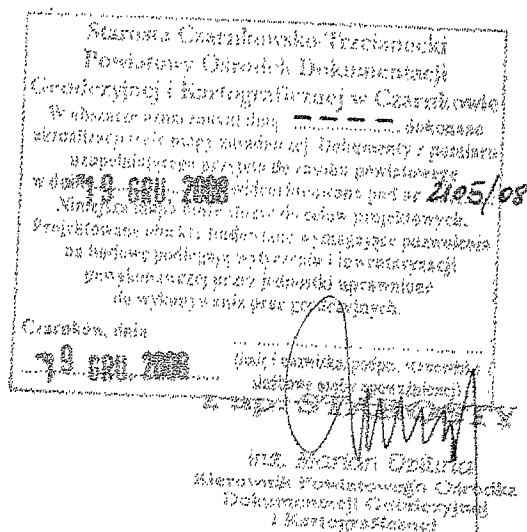 Starosta Czarnkowsko-Trzcianecki
Powiatowy Ośrodek Dokumentacji
Geodezyjnej i Kartograficznej w Czarnkowie
W obszarze oznaczonym linią - - - - dokonano
aktualizacji treści mapy zasadniczej. Dokumenty z pomiaru
uzupełniającego przyjęto do zasobu powiatowego
w dniu 19 GRU. 2008 i zewidencjonowano pod nr 2105/08
Niniejsza mapa może służyć do celów projektowych.
Projektowane obiekty budowlane wymagające pozwolenia
na budowę podlegają wytyczeniu i inwentaryzacji
powykonawczej przez jednostki uprawnione
do wykonywania prac geodezyjnych.
Czarnków, dnia
19 GRU. 2008
(imię i nazwisko, podpis, stanowisko
służbowe osoby upoważnionej)
z up. STAROSTY
inż. Marian
Kierownik Powiatowego Ośrodka
Dokumentacji Geodezyjnej
i Kartograficznej